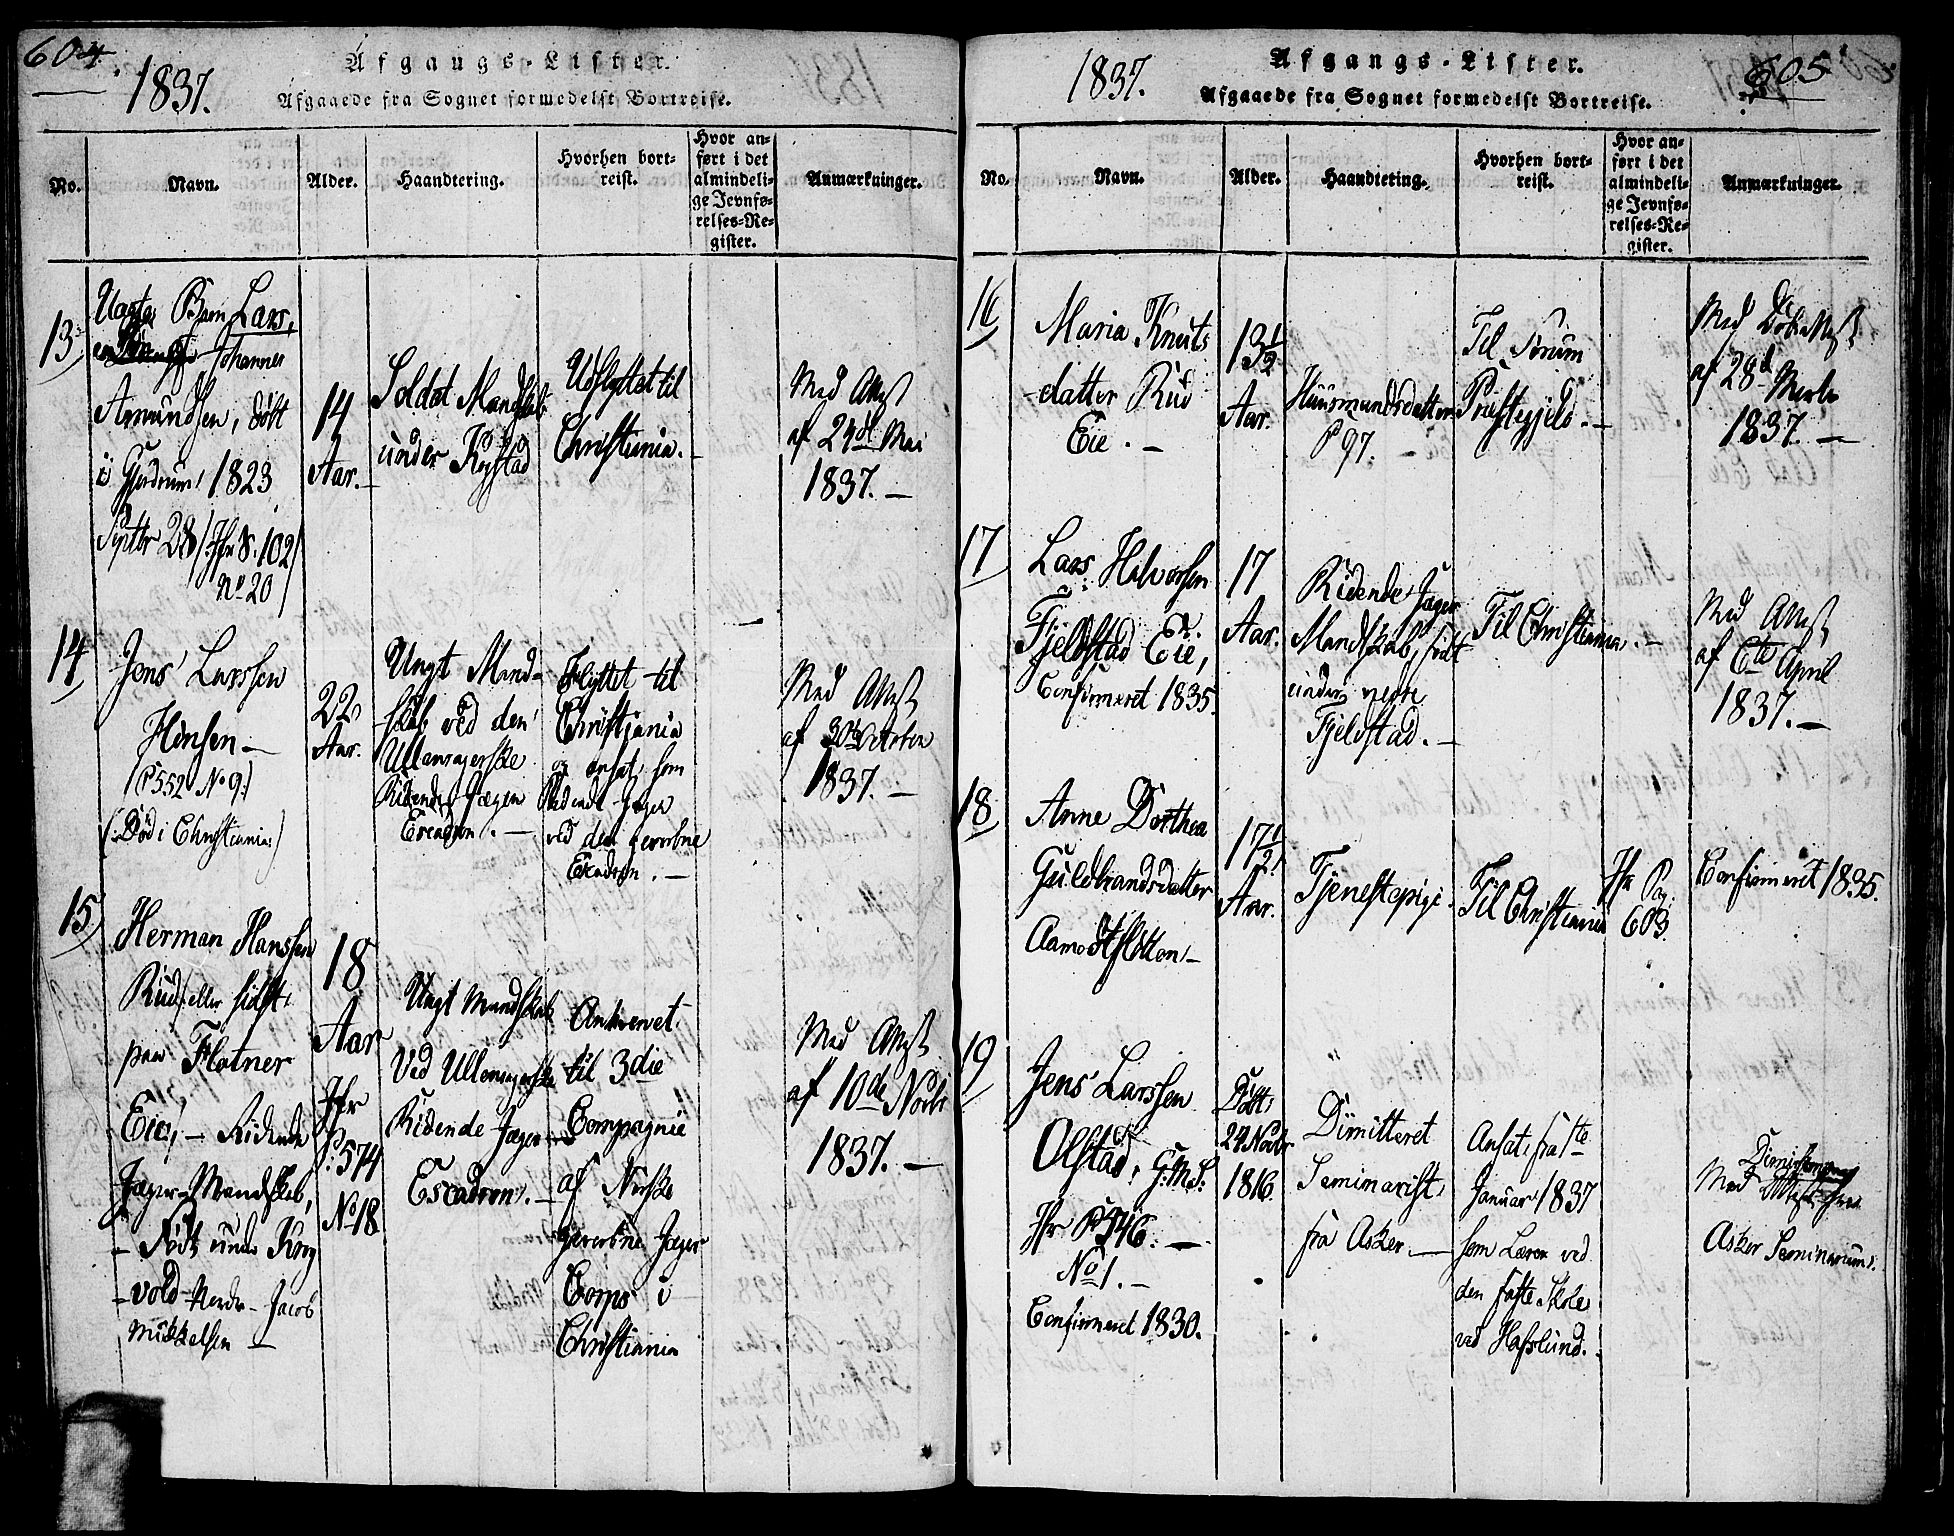 604
1837.
Afgangs-Lister.
Afgaaede fra Sognet formedelst Bortreise.
No.
Navn.
Alder.
Haandtering.
Hvorhen bort-
reist.
Hvor an-
ført i det
almindeli-
ge Jevnfø-
relses-Re-
gister.
Anmærkninger.
13
Uægte Barn Lars,
Johannes
Amundsen, døbt
i Gjerdrum 1823
Septbr 28 (Jfr S. 102)
No 20)
14
Aar.
Soldat Mandskab
under Kogstad
Udflyttet til
Christiania.
Med Attest
af 24de Mai
1837.
14
Jens Larssen
Hønsen
(P 552 No 9.)
(: Død i Christiania:)
22
Aar.
Ungt Mand-
skab ved den
Ullensagerske
Ridende Jæger
Escadron.
Flyttet til
Christiania
og ansat som
Ridende Jæger
ved den geworbne
Escadron.
Med Attest
af 30te October
1837.
15
Herman Hanssen
Rud, eller sidst
paa Flatner
Eie, - Ridende
Jæger-Mandskab,
- Født under Krog
vold - Jacob
Mikkelsen
18
Aar
Jfr
P. 574
No 18
Ungt Mandskab
Ved Ullensagerske
Ridende Jæger
Escadron.
til 3die
Compagnie
af Norske
geworbne Jæger
Corps i
Christiania
Med Attest
af 10de Novbr
1837.
1837.
Afgangs-Lister.
605
Afgaaede fra Sognet formedelst Bortreise.
No.
Navn.
Alder.
Haandtering.
Hvorhen bort-
reist.
Hvor an-
ført i det
almindeli-
ge Jevnfø-
relses-Re-
gister.
Anmærkninger.
16
Maria Knuts
datter Rud
Eie.
13½
Aar.
Huusmandsdatter
P 97.
Til Sørum
Præstegjeld.
Med
af 28de Marts
1837.
17
Lars Halvorsen
Fjeldstad Eie,
Confirmeret 1835.
17
Aar.
Ridende Jæger
Mandskab, født
under nedre
Fjeldstad.
Til Christiania.
Med Attest
af 6te April
1837.
18
Anne Dorthea
Guldbrandsdatter
Aamodt
17½
Aar.
Tjenestepige.
Til Christiania
Jfr Pag.
603.
Confirmeret 1835.
19
Jens Larssen
Olstad, G.M.S.
Jfr P 346.
No 1.
Confirmeret 1830.
Døbt
24 Novbr
1816.
Dimitteret
Seminarist
fra Asker
Ansat fra 1te
Januar 1837
som Lærer ved
den faste Skole
ved Hafslund.
Med Attest fra
Asker Seminarium.